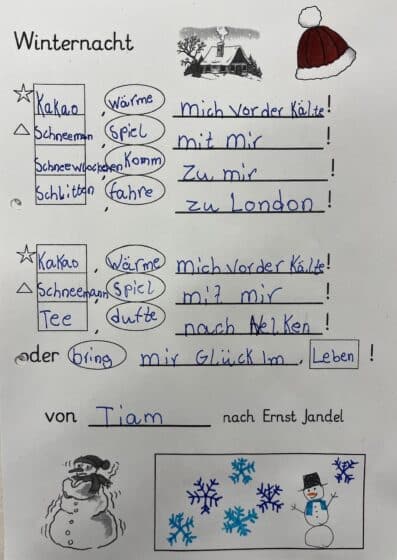 Winternacht
Kakao, wärme mich vor der Kälte!
Schneeman, spiel mit mir!
Schneewlochchen, Komm zu mir!
Schlitten, fahre zu London!
Kakao, wärme mich vor der Kälte!
Schneemann, spiel mit mir!
Tee, dufte nach Nelken!
oder bring mir Glück Im, Leben!
von Tiam nach Ernst Jandel